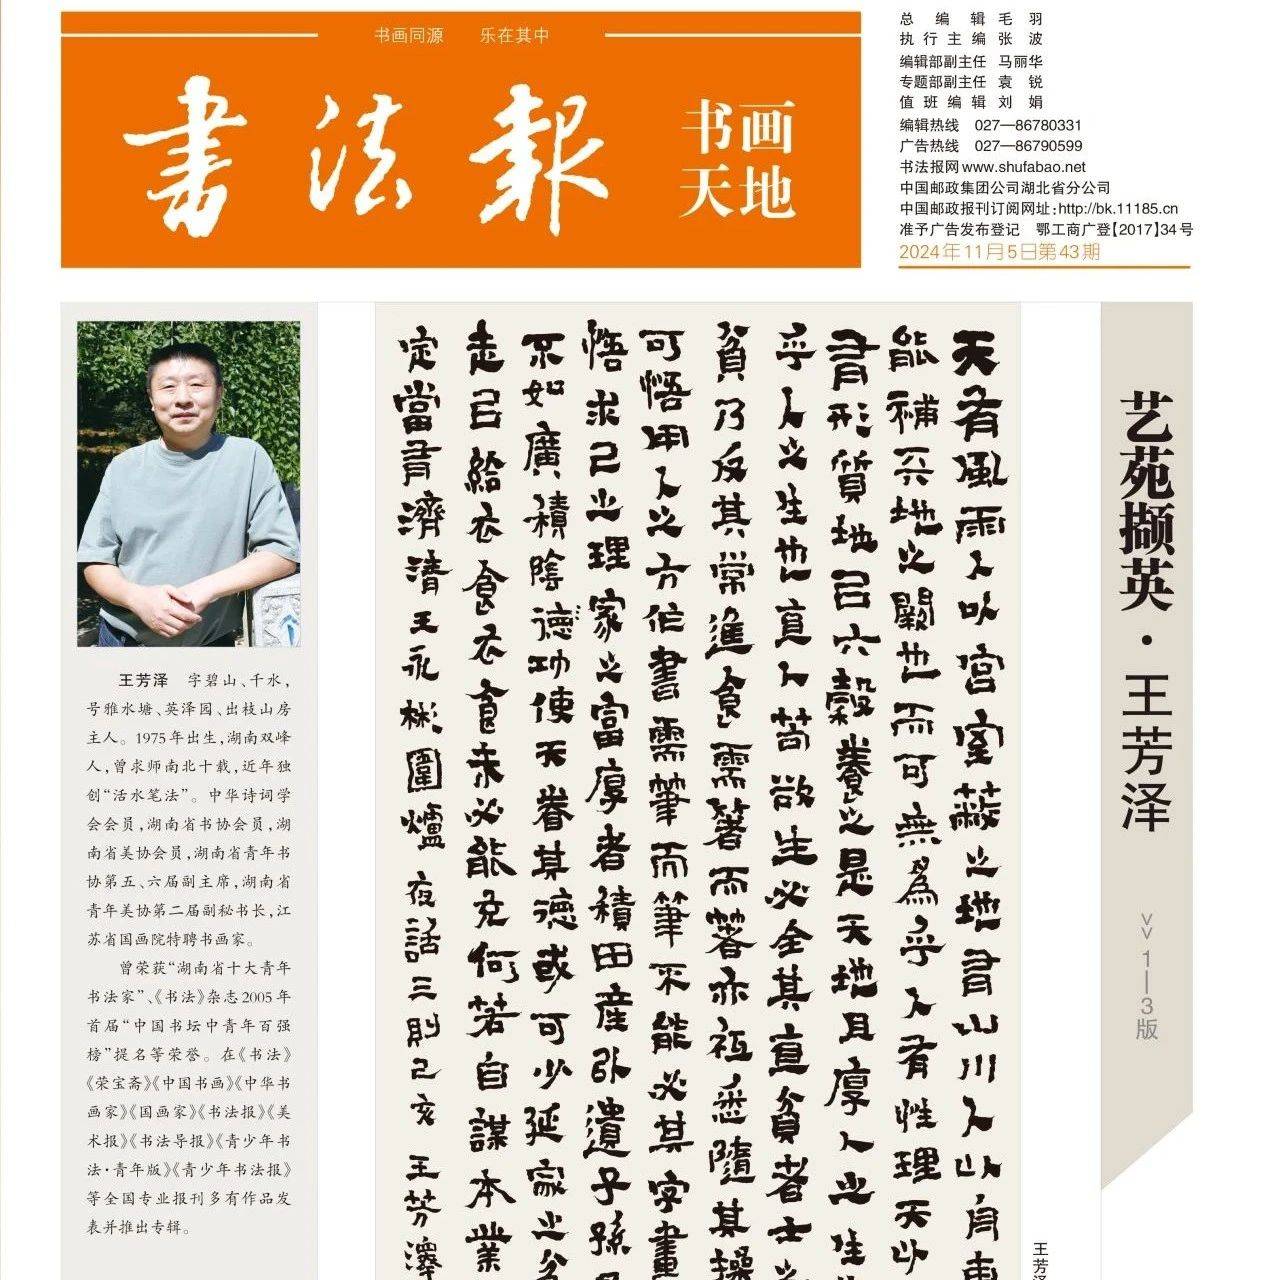 书画同源 乐在其中
書法報
书画
天地
总编辑 毛羽
执行主编 张波
编辑部副主任 马丽华
专题部副主任 袁锐
值班编辑 刘娟
编辑热线 027—86780331
广告热线 027—86790599
书法报网 www.shufabao.net
中国邮政集团公司湖北省分公司
中国邮政报刊订阅网址:http://bk.11185.cn
准予广告发布登记 鄂工商广登【2017】34号
2024年11月5日第43期
艺苑撷英·王芳泽
>> 1—3版
天有風雨人以宮室蔽之地有山川人以舟車
能補天地之闕也而可無為乎人有性理天以
有形質地以六穀養之是天地且厚人之生
乎人之生也直人苟欲生必全其直貧者士之
貧乃反其常進食需箸而箸亦祗悉隨其操
可悟用人之方作書需筆而筆不能必其字畫
悟求己之理家之富厚者積田產以遺子孫
不如廣積陰德功使天眷其德或可少延家之
走已給衣食衣食未必能充何若自謀本業
定當有濟清王永彬圍爐夜話三則己亥 王芳澤
王芳泽 字碧山、千水,
号雅水塘、英泽园、出枝山房
主人。1975年出生,湖南双峰
人,曾求师南北十载,近年独
创“活水笔法”。中华诗词学
会会员,湖南省书协会员,湖
南省美协会员,湖南省青年书
协第五、六届副主席,湖南省
青年美协第二届副秘书长,江
苏省国画院特聘书画家。
曾荣获“湖南省十大青年
书法家”、《书法》杂志2005年
首届“中国书坛中青年百强
榜”提名等荣誉。在《书法》
《荣宝斋》《中国书画》《中华书
画家》《国画家》《书法报》《美
术报》《书法导报》《青少年书
法·青年版》《青少年书法报》
等全国专业报刊多有作品发
表并推出专辑。
王芳泽